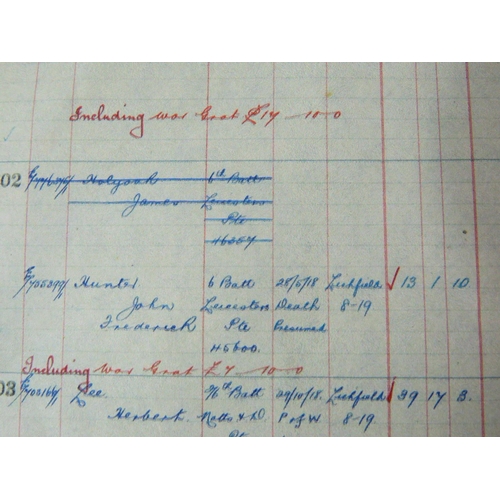 Including War Grat £17 – 10 – 0
02 Holyoak 6th Batt
James Leicesters
Pte
46257
Hunter 6 Batt 28/5/18 Lichfield 13 1 10
John Leicesters Death 8-19.
Frederick Pte Presumed
45600.
Including War Grat £7 – 10 – 0
03 Lee 2/6th Batt 29/10/18. Lichfield 39 17 3.
Herbert. Notts & D P of W. 8-19.
Pte